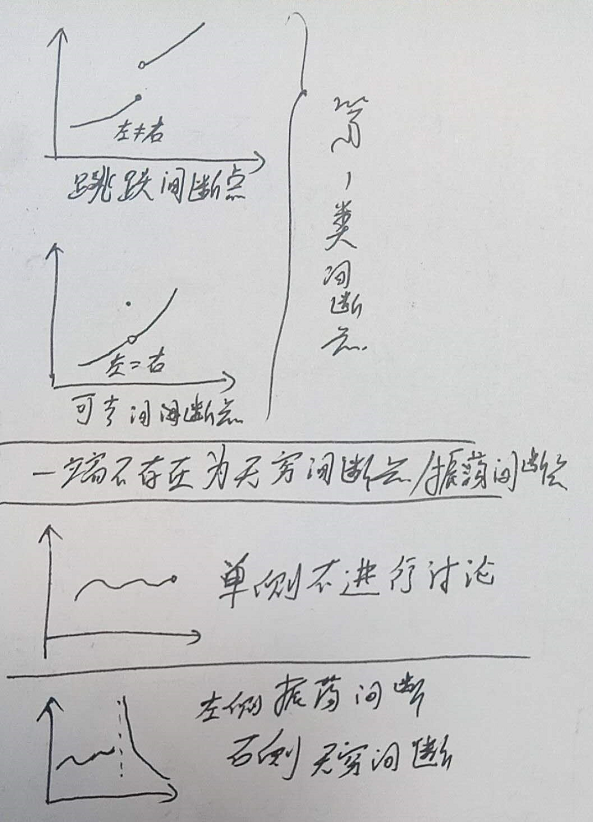 左≠右
跳跃间断点
第一类间断点
左=右
可去间断点
一端不存在为无穷间断点/振荡间断点
单侧不进行讨论
左侧振荡间断
右侧无穷间断